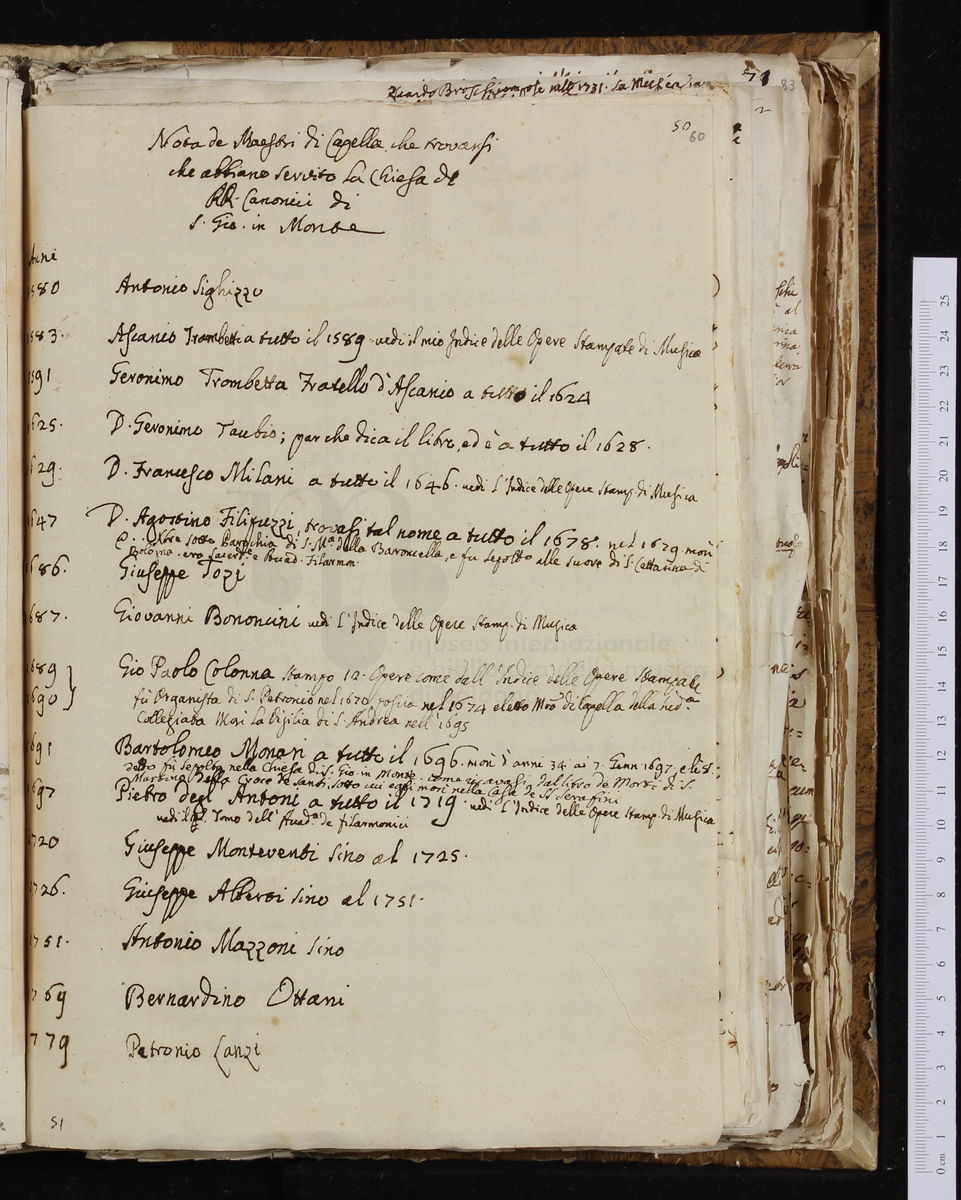 Riccardo Broschi compose nell 1731. La Merope in
71
83
50
60
Nota de Maestri di Capella che trovansi
che abbiano servito La Chiesa de
RR. Canonici di
S. Gio. in Monte
Anni
1580 Antonio Sighizzo
1583. Ascanio Trombetti a tutto il 1589. vedi il mio Indice delle Opere Stampate di Musica
1591 Geronimo Trombetta Fratello d'Ascanio a tutto il 1624
1625. D. Geronimo Taubio; par che dica il libro, ed è a tutto il 1628.
1629. D. Francesco Milani a tutto il 1646. vedi L'Indice delle Opere Stamp. di Musica
1647 D. Agostino Filipuzzi, trovasi tal nome a tutto il 1678. nel 1679 morì
8bre sotto Parochia di S. Ma. della Baroncella, e fu sepolto alle Suore di S. Cattarina di
Bologna. era Sacerd.e e Acad. Filarmon.
1686. Giuseppe Tozi
1687. Giovanni Bononcini vedi L'Indice delle Opere Stamp. di Musica
1689 Gio Paolo Colonna stampo 12. Opere come dall'Indice delle Opere Stampate
1690 fù Organista di S. Petronio nel 1670 poscia nel 1674 eletto Mro. di Capella della sud.a
Collegiata Morì la Vigilia di S. Andrea nell' 1695
1691 Bartolomeo Monari a tutto il 1696. morì d'anni 34. ai 7. Genn 1697. e li 8.
detto fù sepolto nella Chiesa di S. Gio. in Monte. come ricavasi dal libro de Morti di S.
Martino della Croce de Santi, sotto cui egli morì nella Casa de SS. Serafini
1697 Pietro degl' Antoni a tutto il 1719. vedi L'Indice delle Opere Stamp. di Musica
vedi il Tomo dell' Acad.a de filarmonici
1720 Giuseppe Monteventi sino al 1725.
1726. Giuseppe Alberti sino al 1751.
1751. Antonio Mazzoni sino
1769 Bernardino Ottani
1779 Petronio Lanzi
51
museo internazionale
e biblioteca della musica